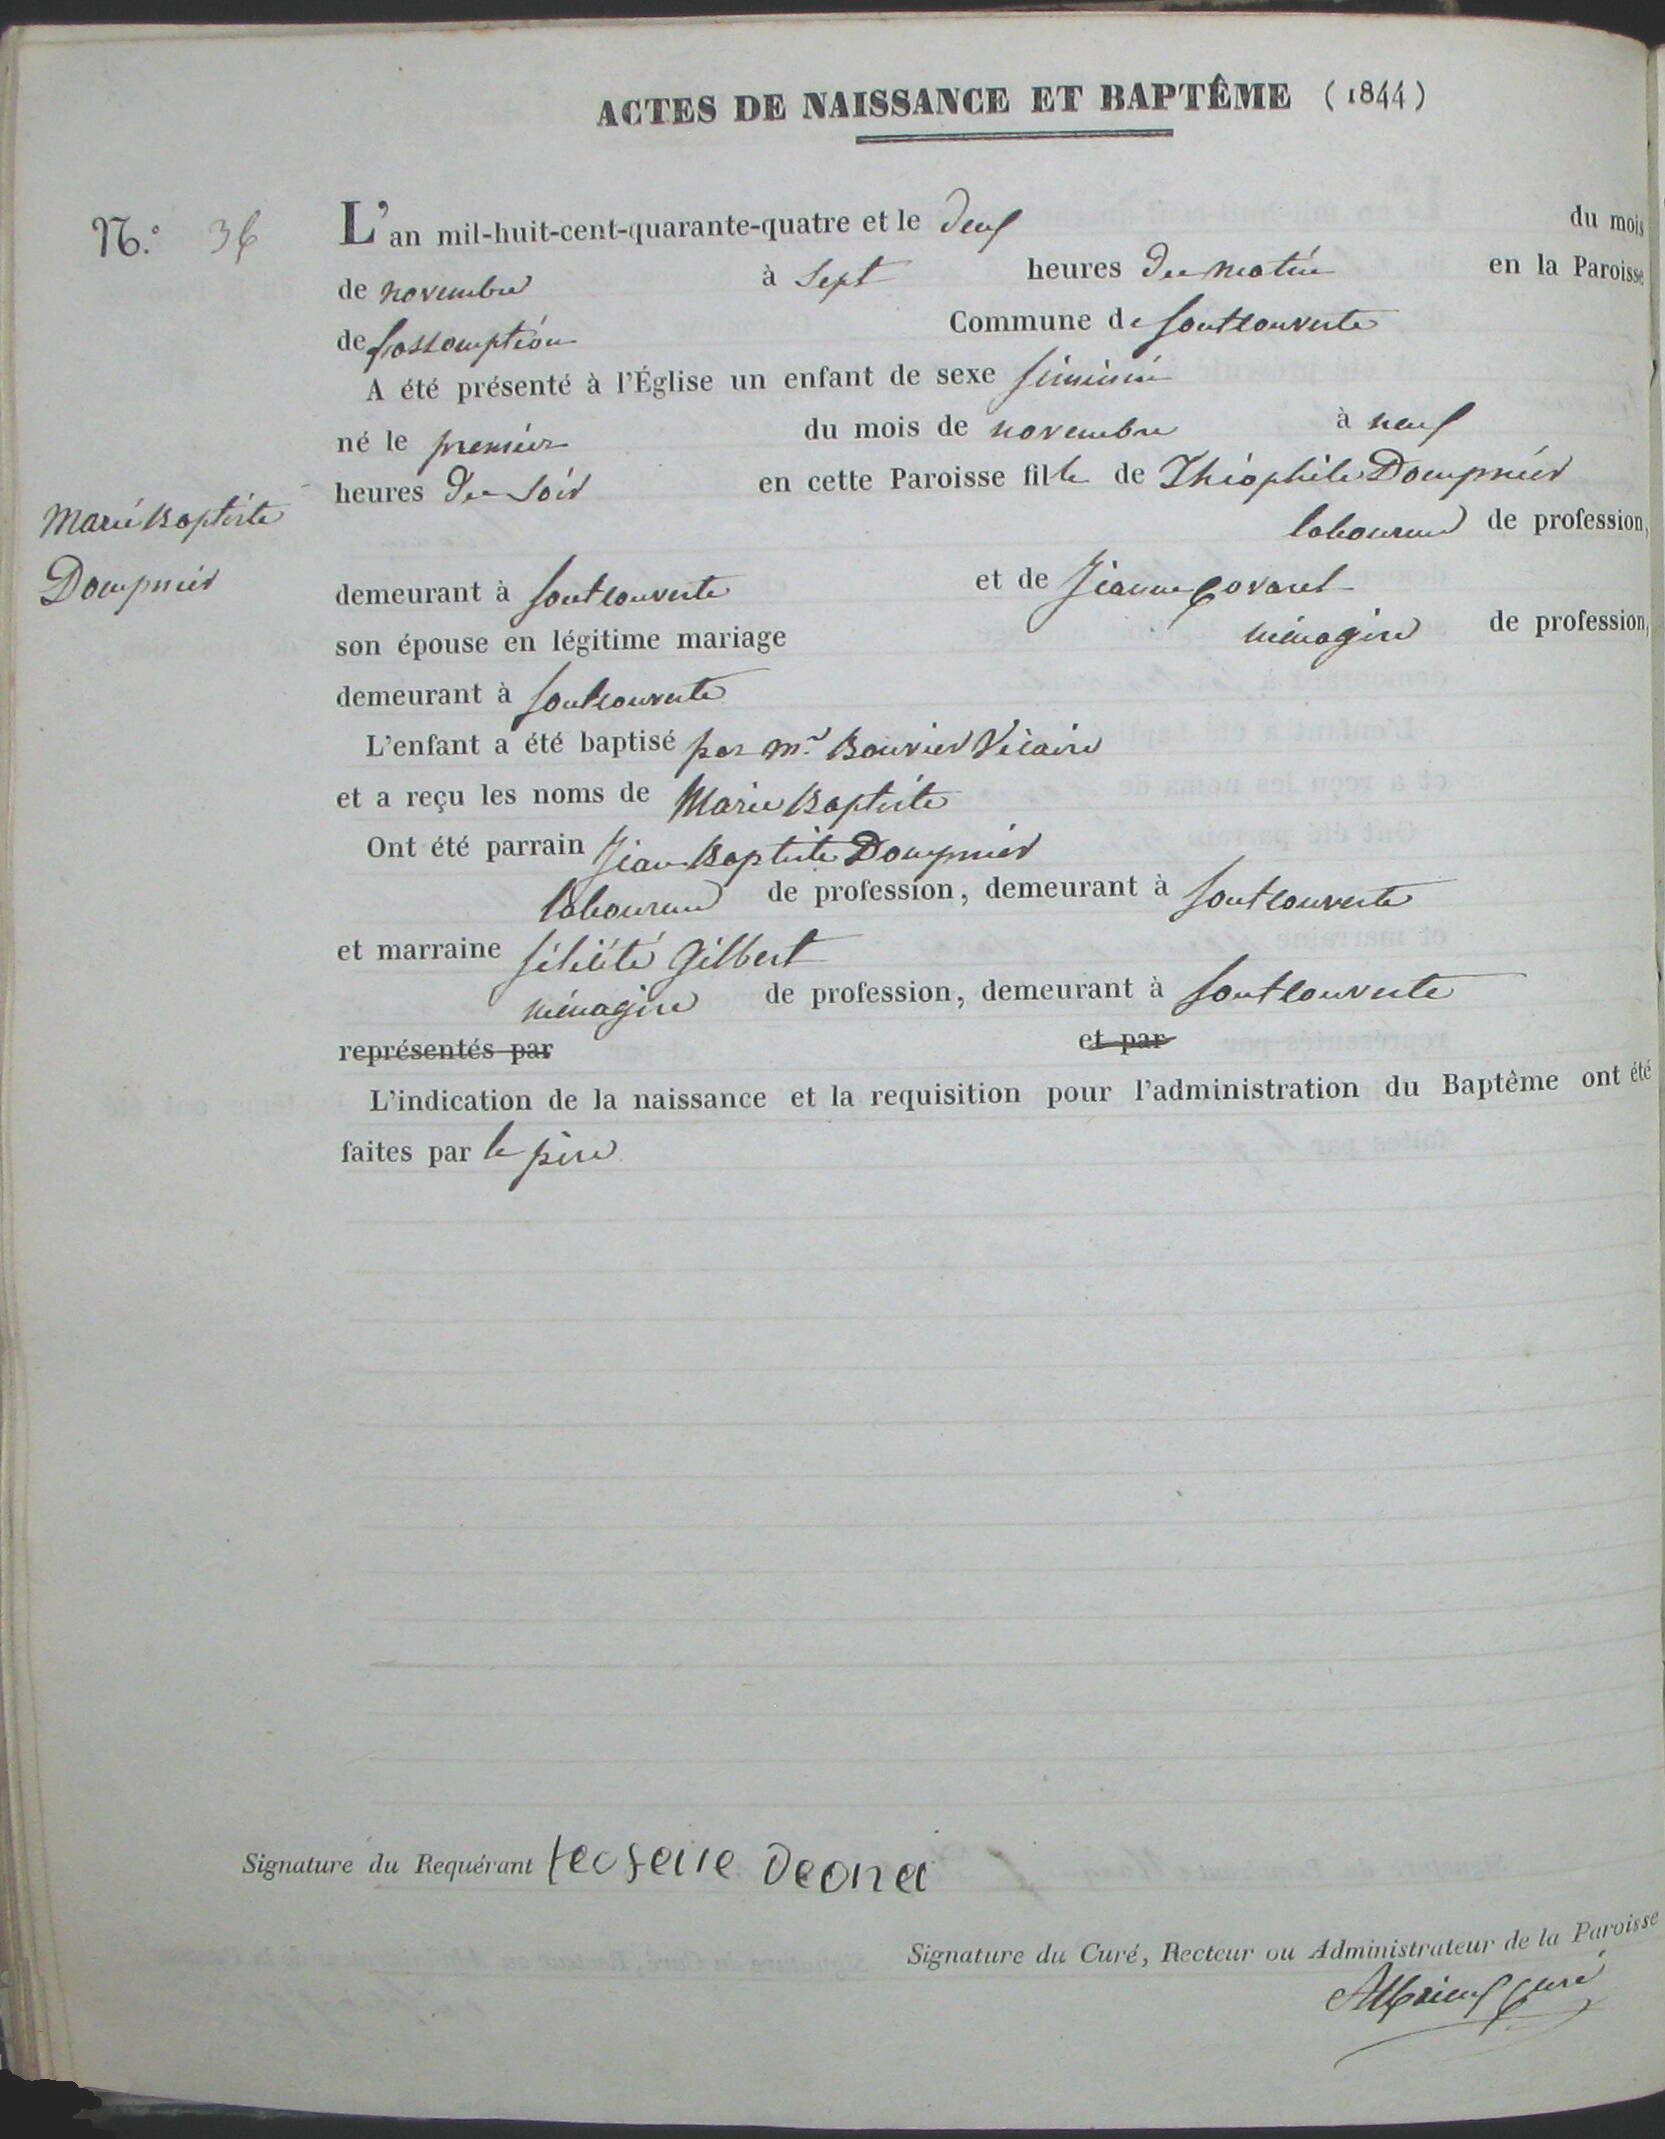 ACTES DE NAISSANCE ET BAPTÊME (1844)
N.° 36
L'an mil-huit-cent-quarante-quatre et le deux du mois
de novembre à sept heures du matin en la Paroisse
de l'assomption Commune de fontcouverte
A été présenté à l'Église un enfant de sexe féminin
né le premier du mois de novembre à neuf
heures du soir en cette Paroisse fille de Théophile Dompnier
laboureur de profession,
Marie Baptiste
Dompnier
demeurant à fontcouverte et de Jeanne Covarel
son épouse en légitime mariage ménagère de profession,
demeurant à fontcouverte
L'enfant a été baptisé par mr Bouvier Vicaire
et a reçu les noms de Marie Baptiste
Ont été parrain Jean Baptiste Dompnier
laboureur de profession, demeurant à fontcouverte
et marraine félicité Gilbert
ménagère de profession, demeurant à fontcouverte
représentés par et par
L'indication de la naissance et la requisition pour l'administration du Baptême ont été
faites par le père
Signature du Requérant
Signature du Curé, Recteur ou Administrateur de la Paroisse
curé